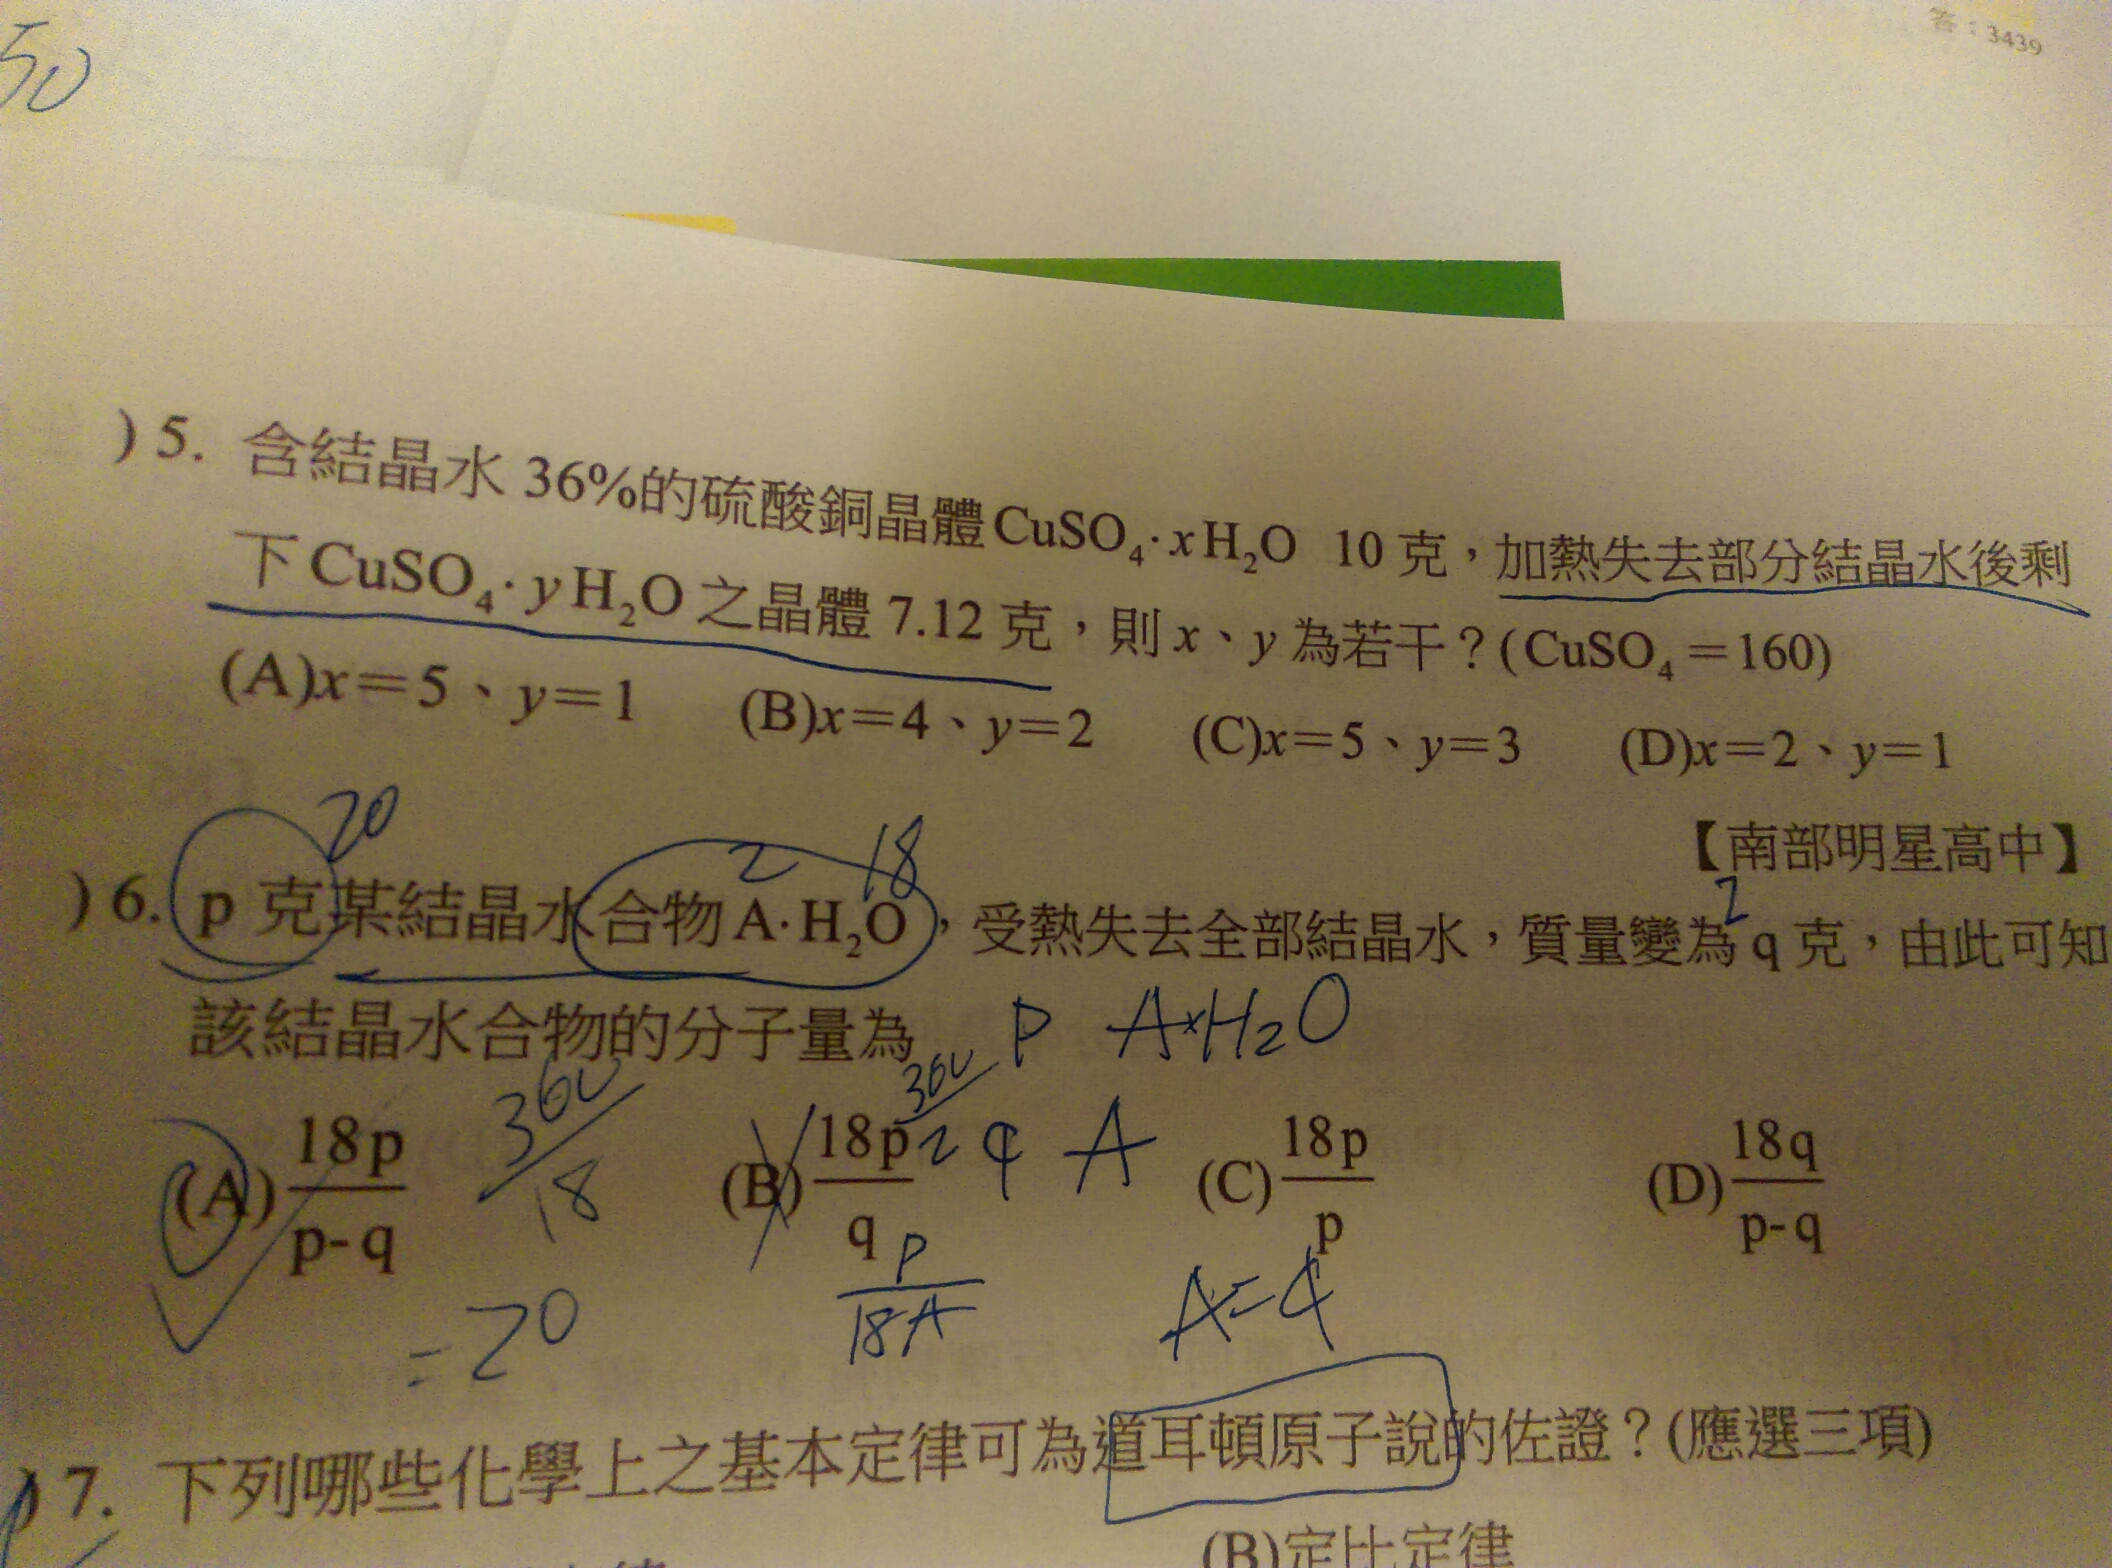 答：3439
50
) 5. 含結晶水 36%的硫酸銅晶體CuSO₄·xH₂O 10 克，加熱失去部分結晶水後剩
下CuSO₄·yH₂O之晶體 7.12 克，則 x、y 為若干？(CuSO₄＝160)
(A)x＝5、y＝1 (B)x＝4、y＝2 (C)x＝5、y＝3 (D)x＝2、y＝1
【南部明星高中】
20 2 18 2
) 6. p 克某結晶水合物A·H₂O，受熱失去全部結晶水，質量變為 q 克，由此可知
該結晶水合物的分子量為 P A×H₂O
(A) 18p/p-q 360/18 (B) 18p/q 360/2 q A (C) 18p/p (D) 18q/p-q
=20 P/18A A=q
) 7. 下列哪些化學上之基本定律可為道耳頓原子說的佐證？(應選三項)
(B)定比定律